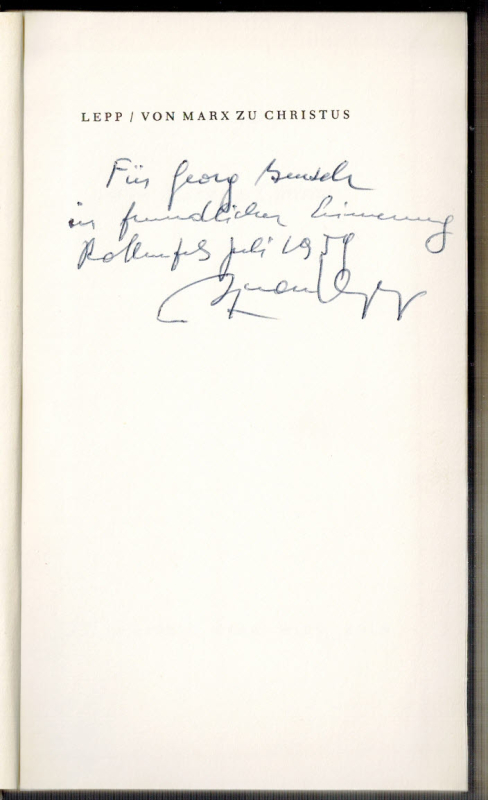 LEPP / VON MARX ZU CHRISTUS
Für Georg
in freundlicher Erinnerung
Rothenfels Juli 1959
Ignace Lepp